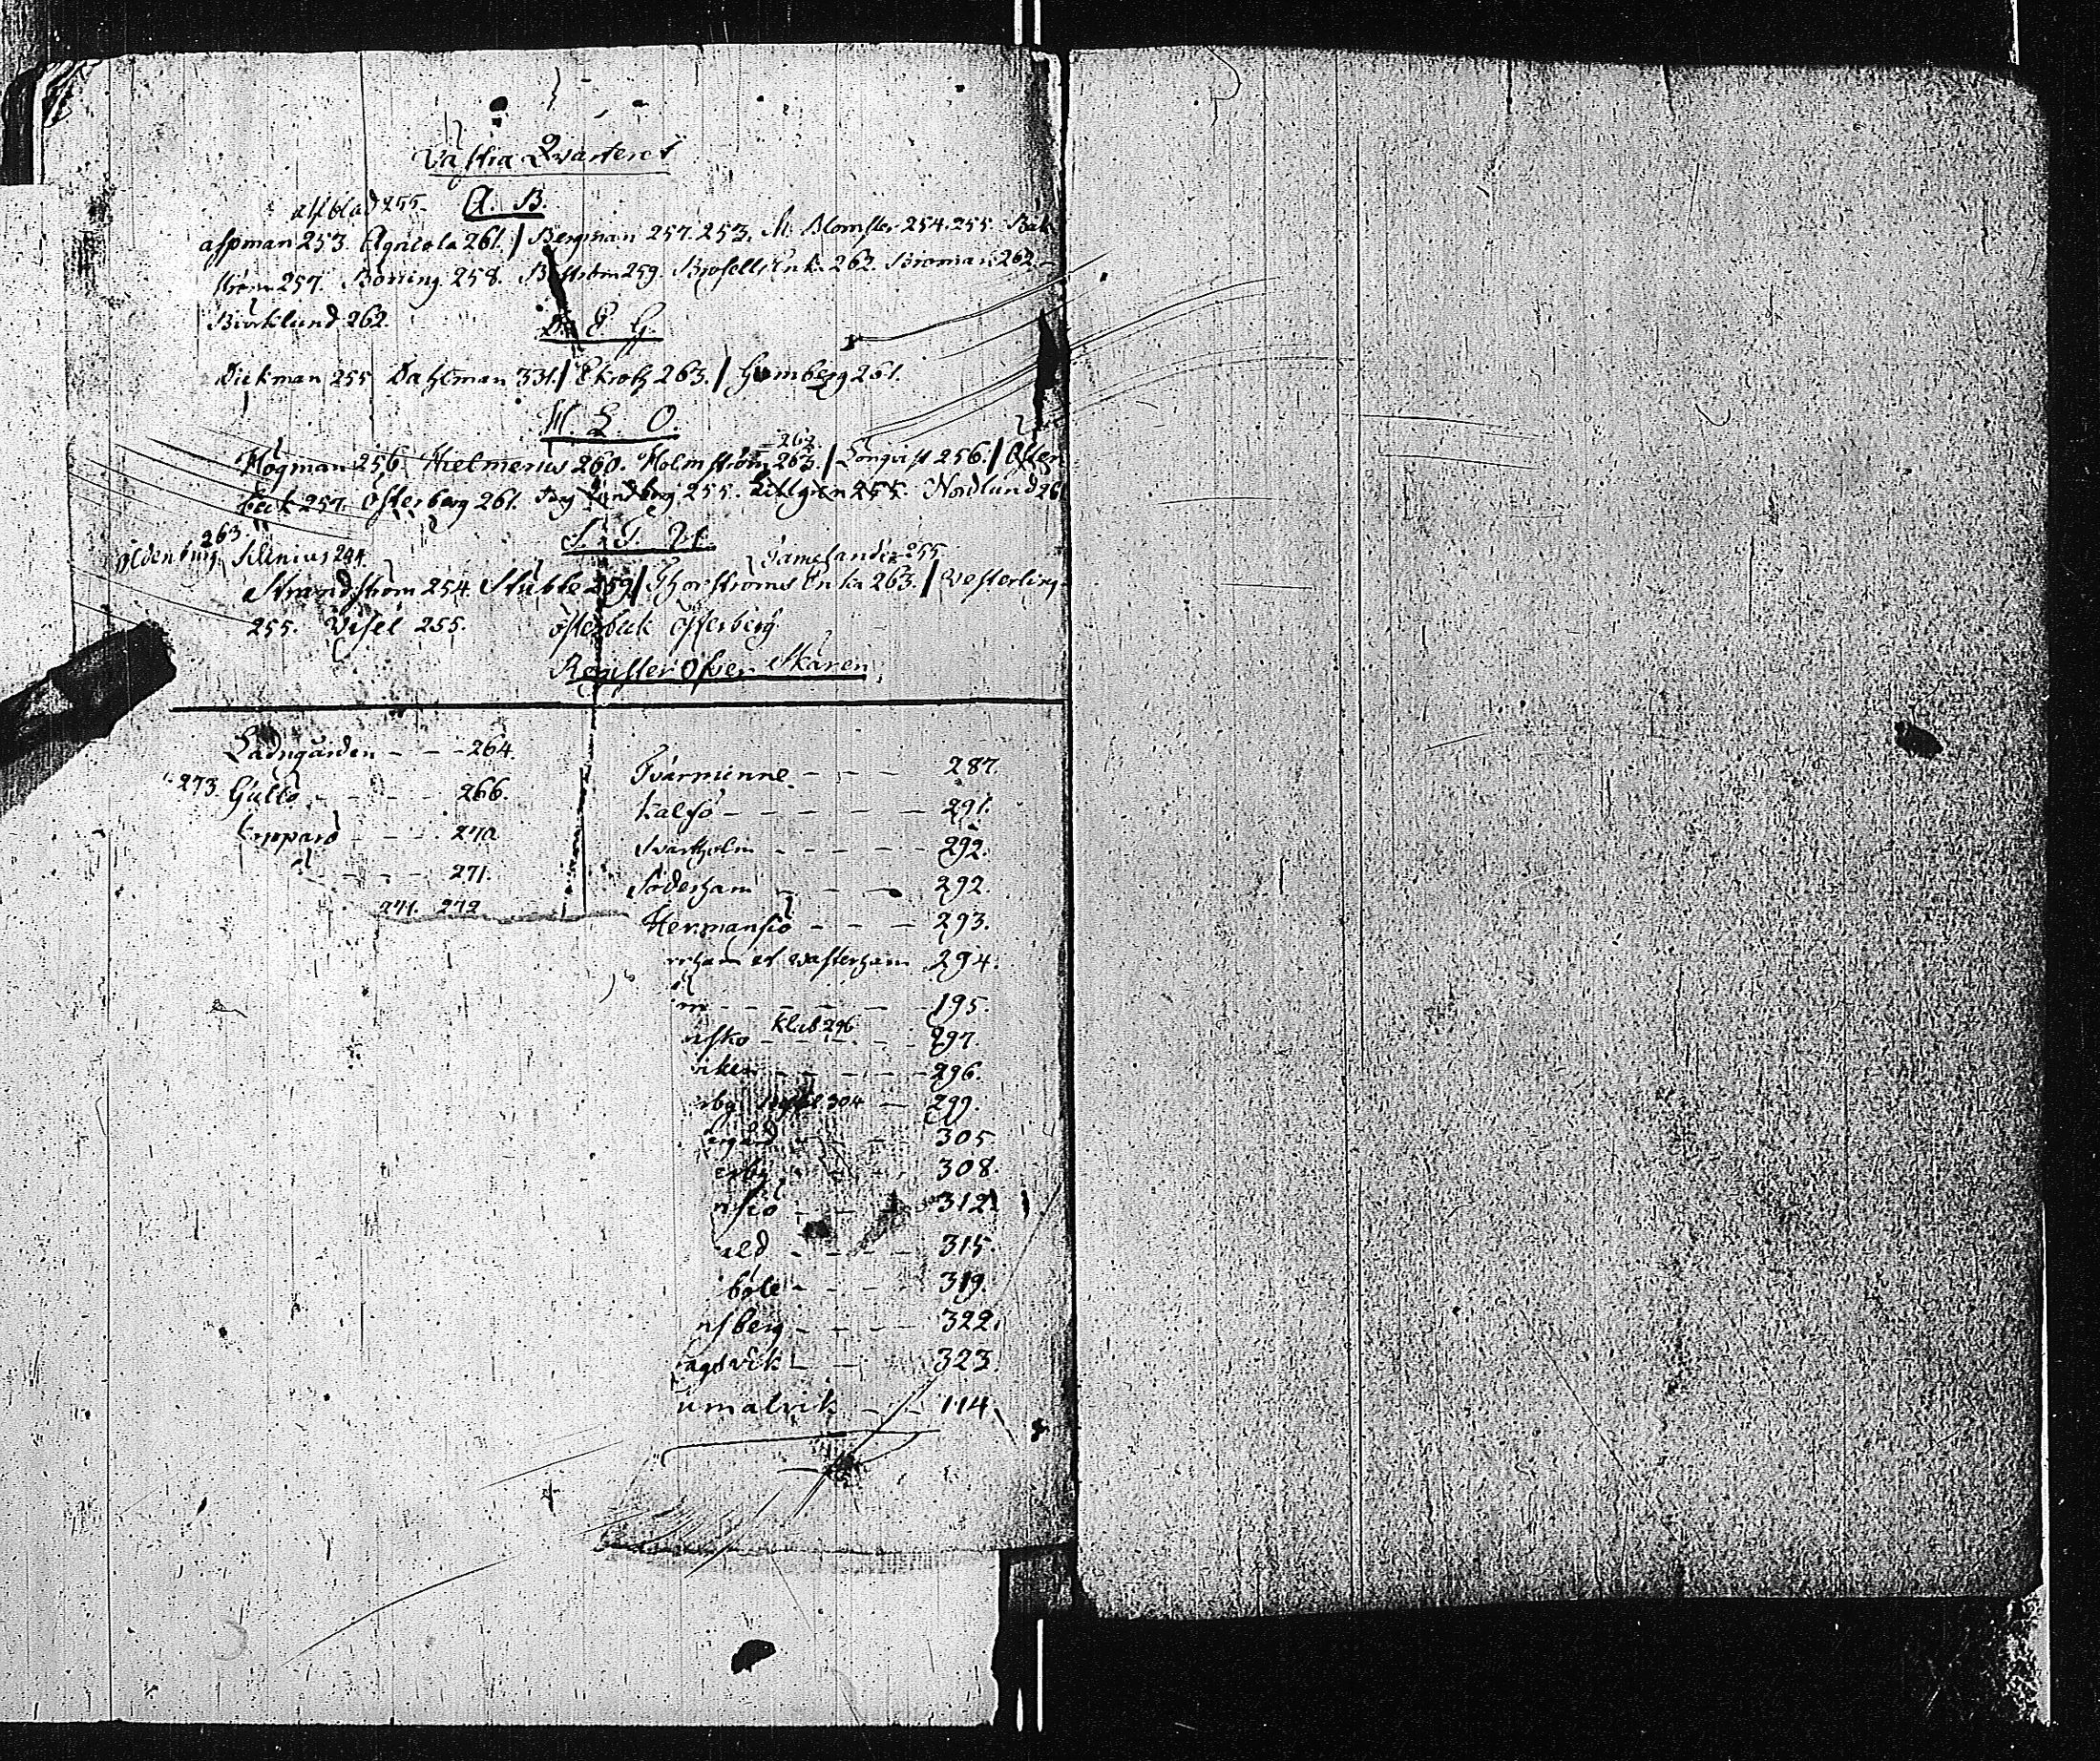 Västra Qvarteret
alfblad 255. A. B.
aspman 253. Agricola 261. / Bergman 257. 253. M. Blomster 254. 255. Bäk
ström 257. Borring 258. Boström 259. Brofelt Enk. 262. Broman 262.
Björklund 262.
D. E G.
Dickman 255 Dahlman 331. / Ekroth 263. / Gumberg 261.
H L O.
262
Högman 256. Hielmerus 260. Holmström 263. / Lönqvist 256. / Öster
beck 257. Österberg 261. Lindberg 255. Lillgren 255. Nordlund 261
S. T. W.
263.
Oldenburg Silenius 244. Tamelander 255
Strandström 254 Stubbe 259 / Thorströms Enka 263. / Westerling
255. Wisel 255. Österbeck Österberg
Register Öfver Skären
Ladugården - - - 264.
273. Gullö - - - - 266.
Knippard - - - 270
- - - - 271.
271. 272
Tvärminne - - - 287.
Kalfö - - - - - 291.
Svartholm - - - - 292.
Söderham - - - 292.
Hermansiö - - - 293.
rrham et Wästerham 294.
- - - - - 195.
Klub 296
skö - - - - 297.
viken - - - - - 296.
rby 304 - 299.
ergård - - - 305
erby - - - 308.
nsiö - - - 312
ald - - - - 315.
böle - - - - 319.
nsberg - - - - 322.
agsvik - - - 323.
umalvik - - - 114.